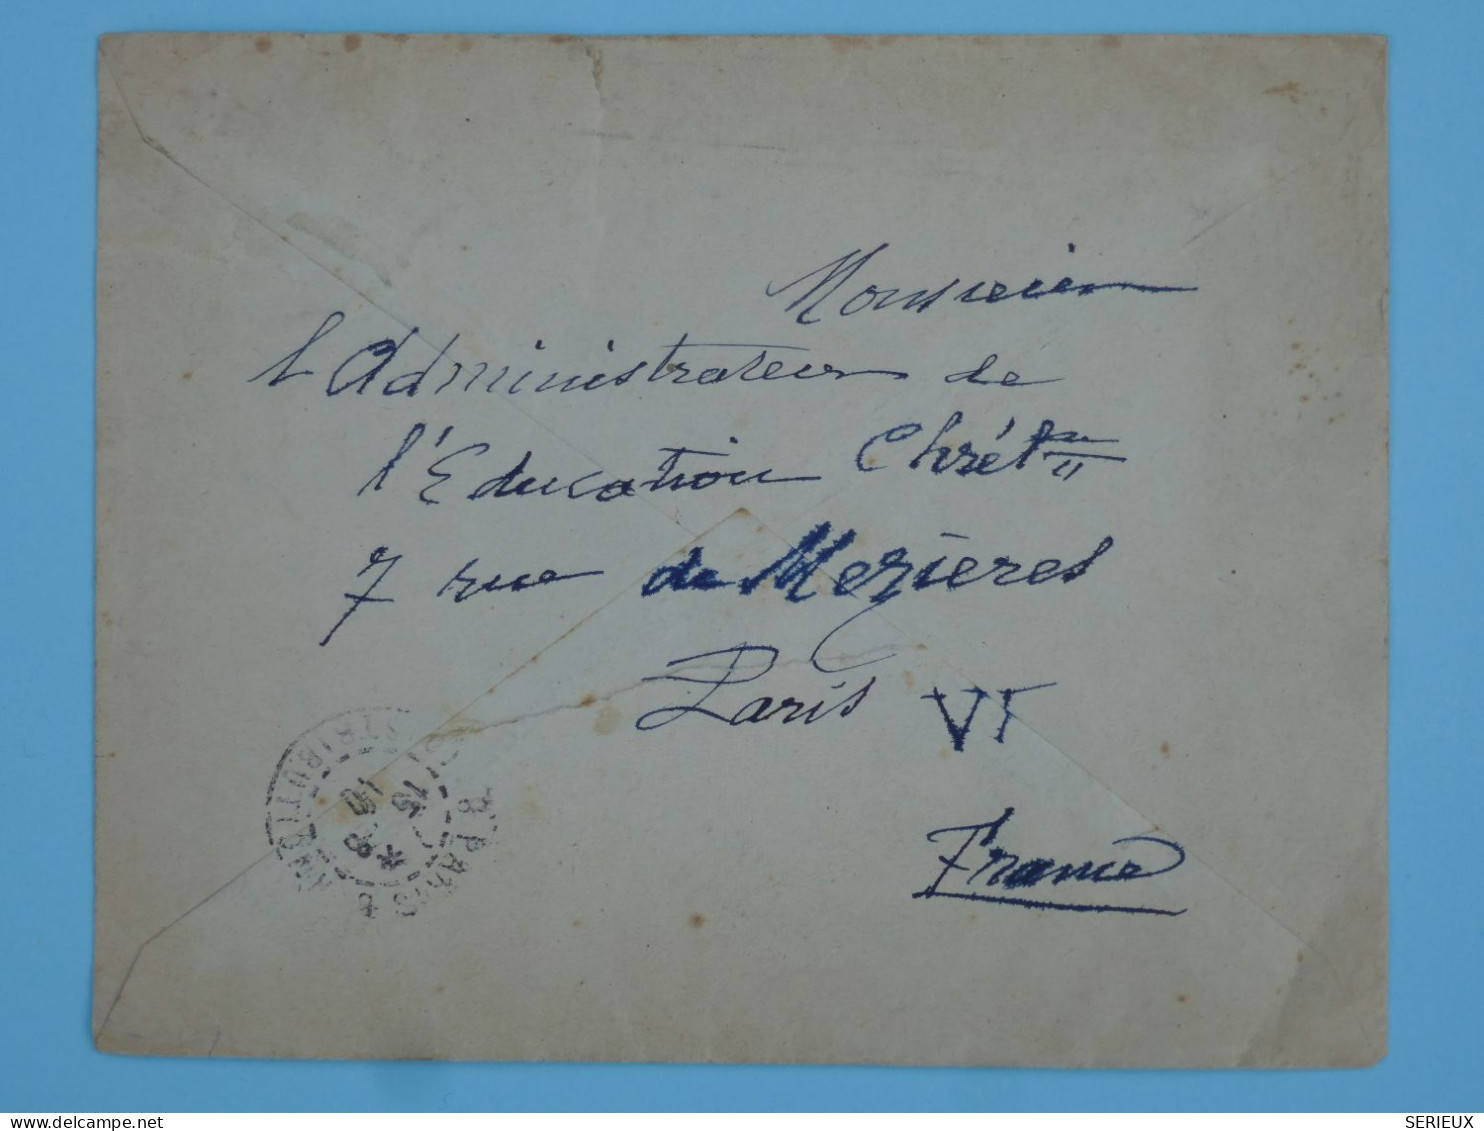 Monsieur
l'Administrateur de
l'Education Chrétne
7 rue de Mezieres
Paris VI
France
PARIS
DISTRIBUTION
delcampe.net
SERIEUX